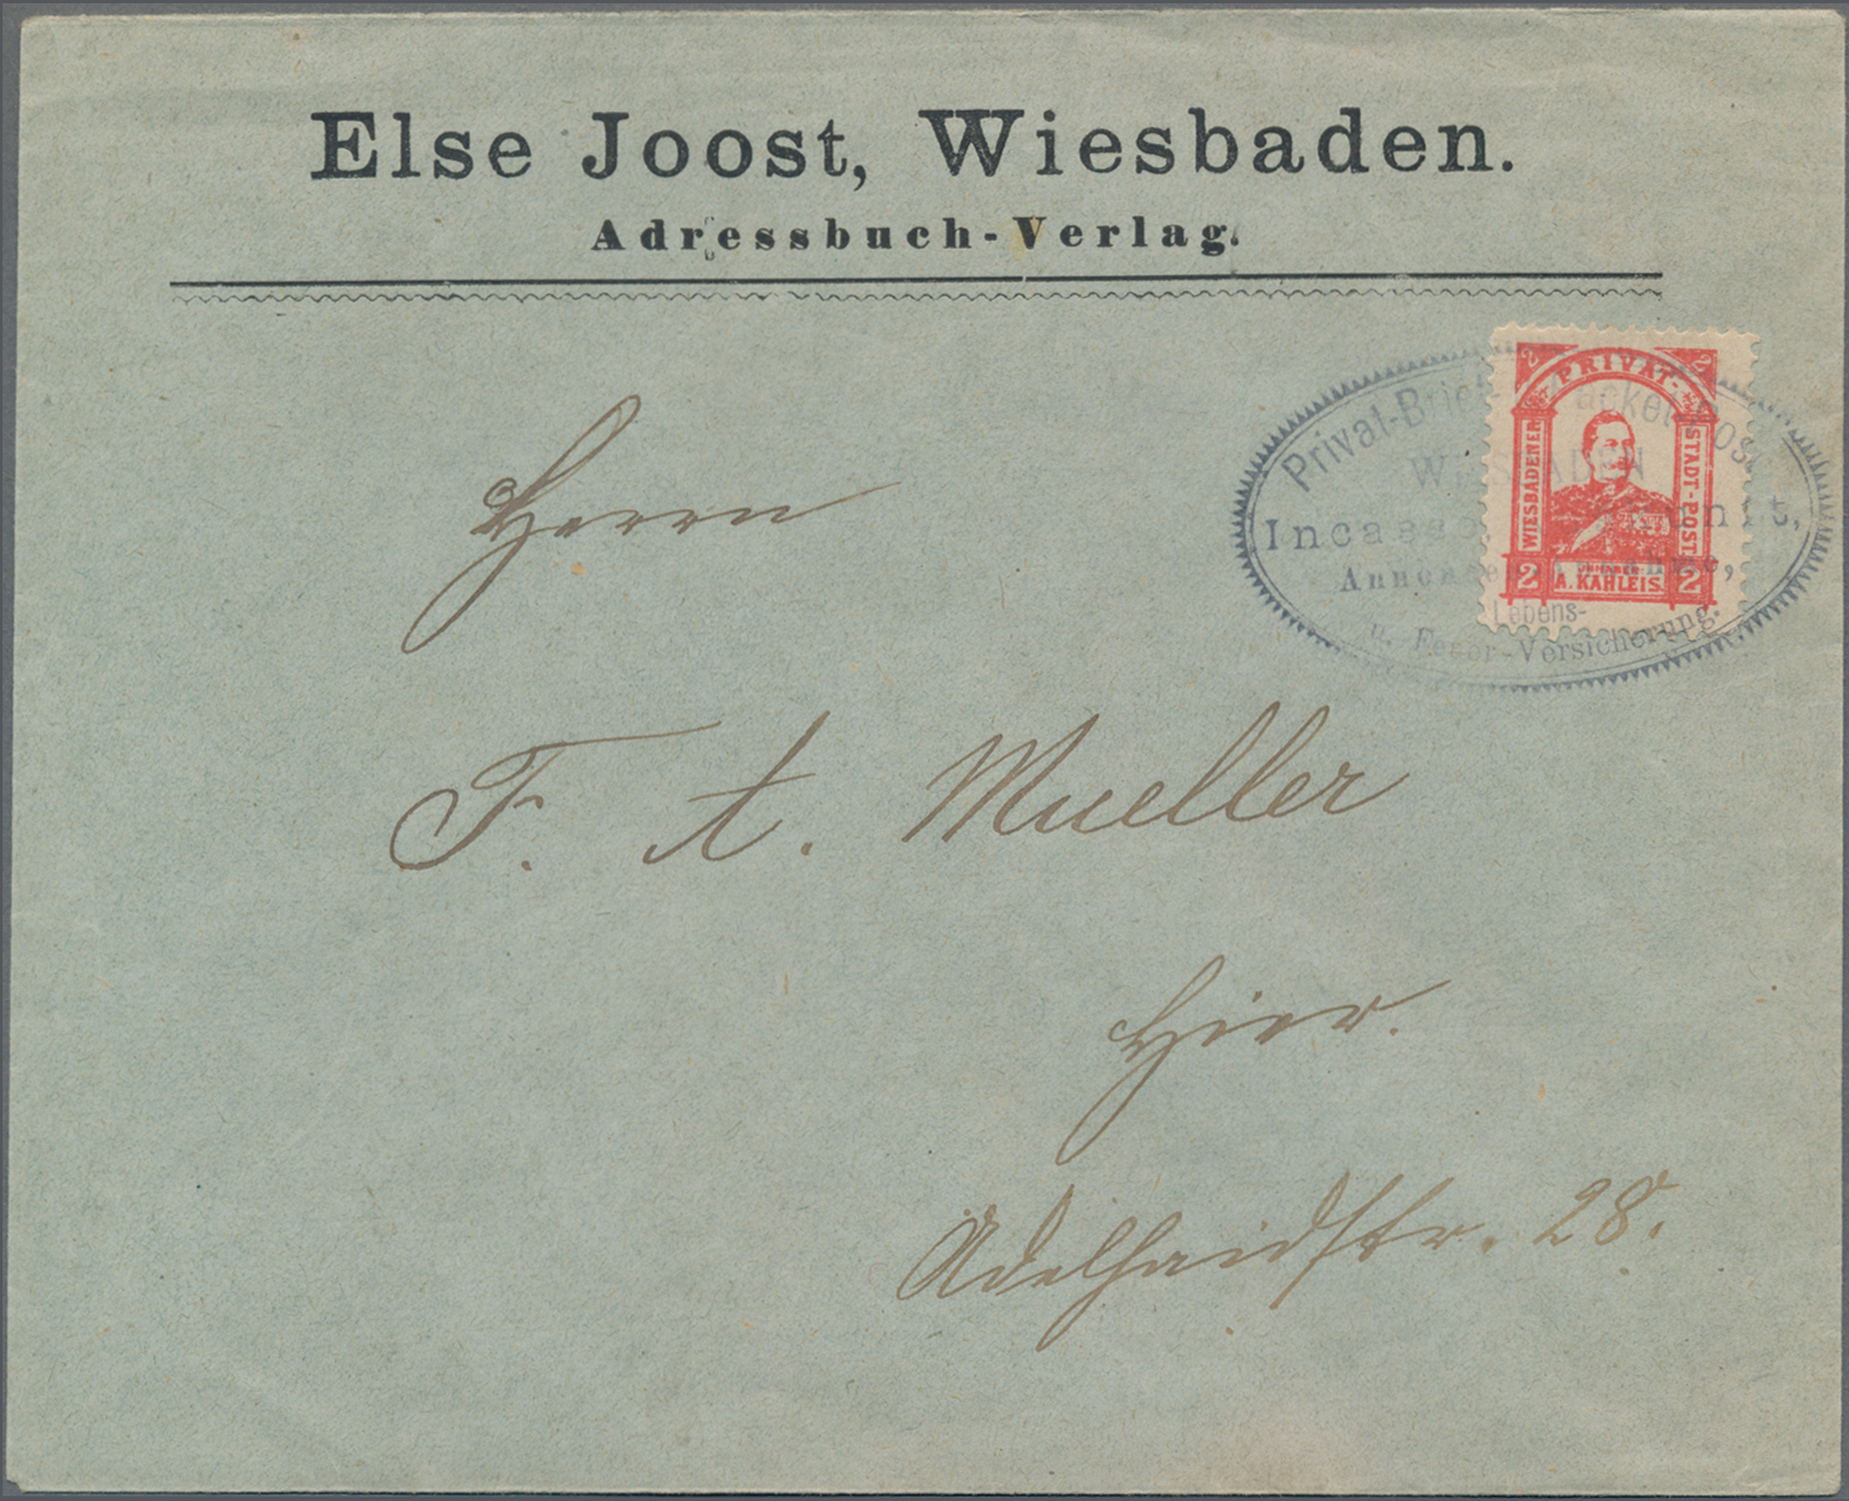 Else Joost, Wiesbaden.
Adressbuch-Verlag.
2 PRIVAT- 2
WIESBADENER
STADT-POST
2 INHABER: 2
A. KAHLEIS.
Privat-Brief
WIESBADEN
Incasso
Lebens-
u. Feuer-Versicherung.
Herrn
F. A. Mueller
Hier.
Adelhaidstr. 28.